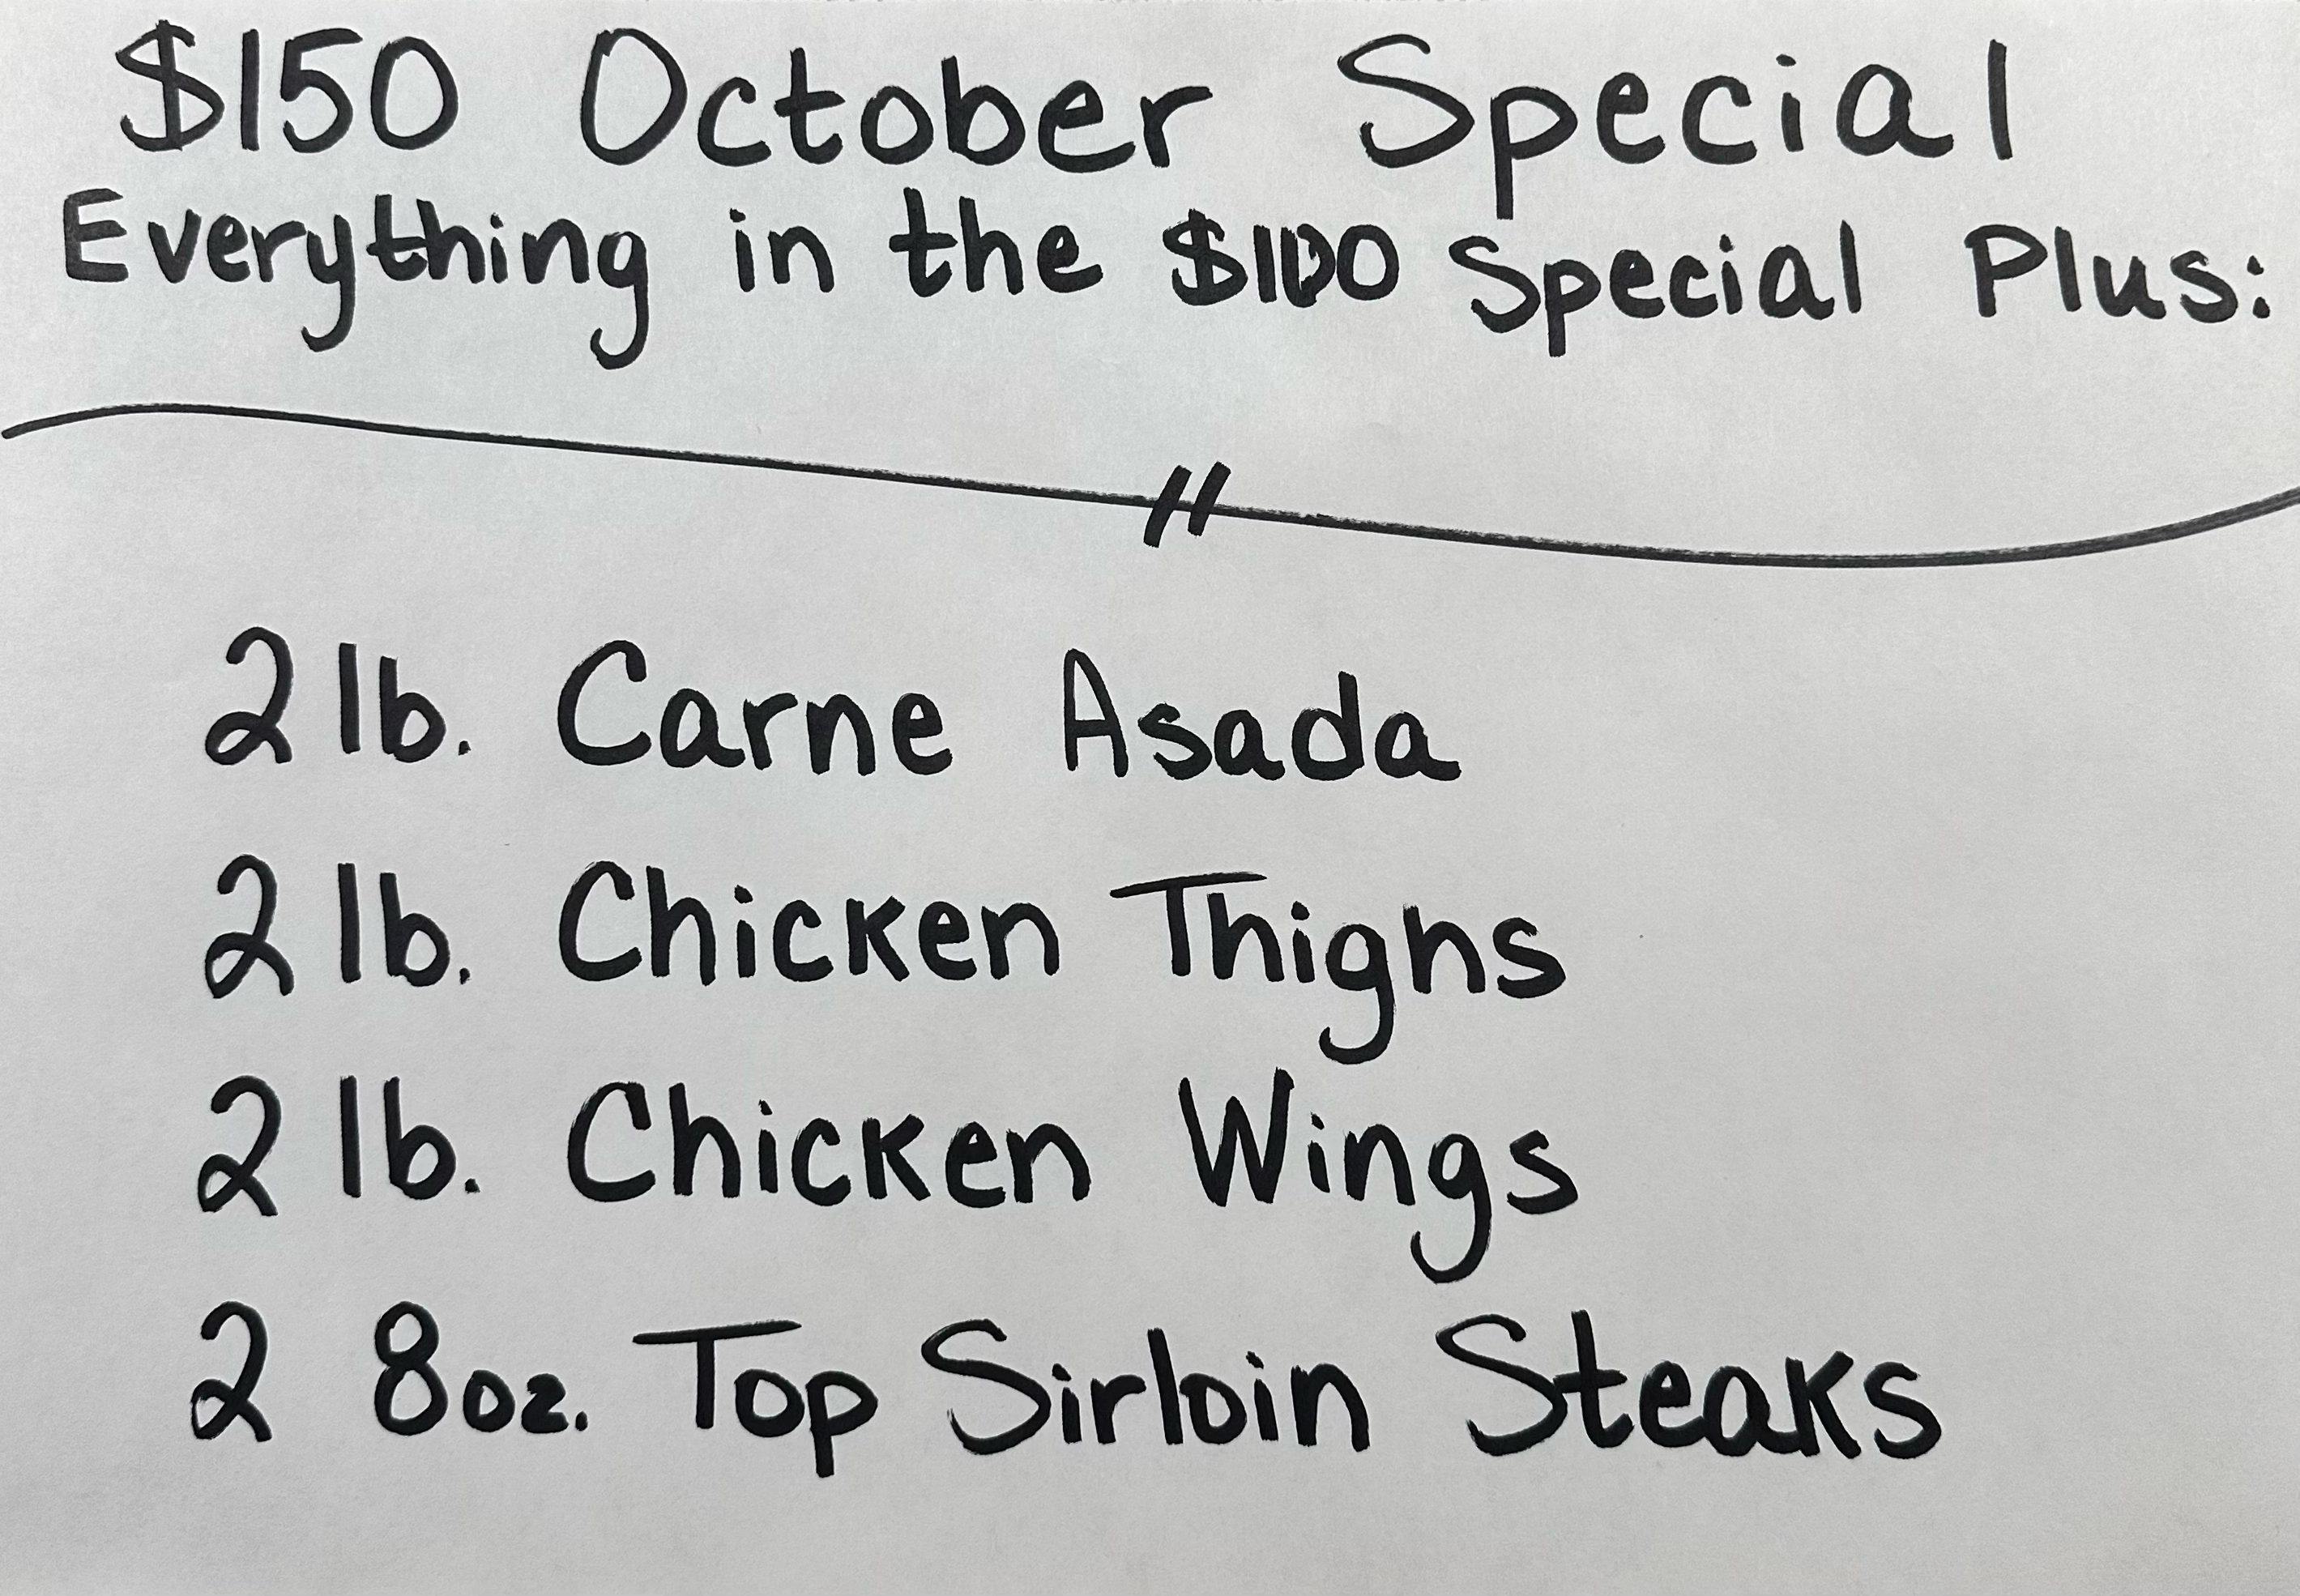 $150 October Special
Everything in the $100 Special Plus:
2 lb. Carne Asada
2 lb. Chicken Thighs
2 lb. Chicken Wings
2 8oz. Top Sirloin Steaks